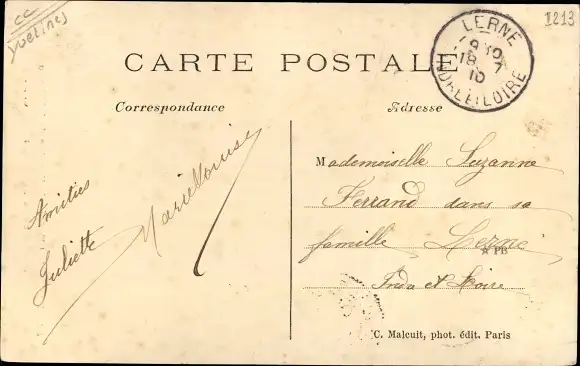 CC
Yvelines
1213
LERNE
9 10
18 - 7
10
INDRE-ET-LOIRE
CARTE POSTALE
Correspondance
Adresse
Amitiés
Juliette
Marielouise
Mademoiselle Suzanne
Ferrand dans sa
famille Lerné
Indre et Loire
C. Malcuit, phot. édit. Paris